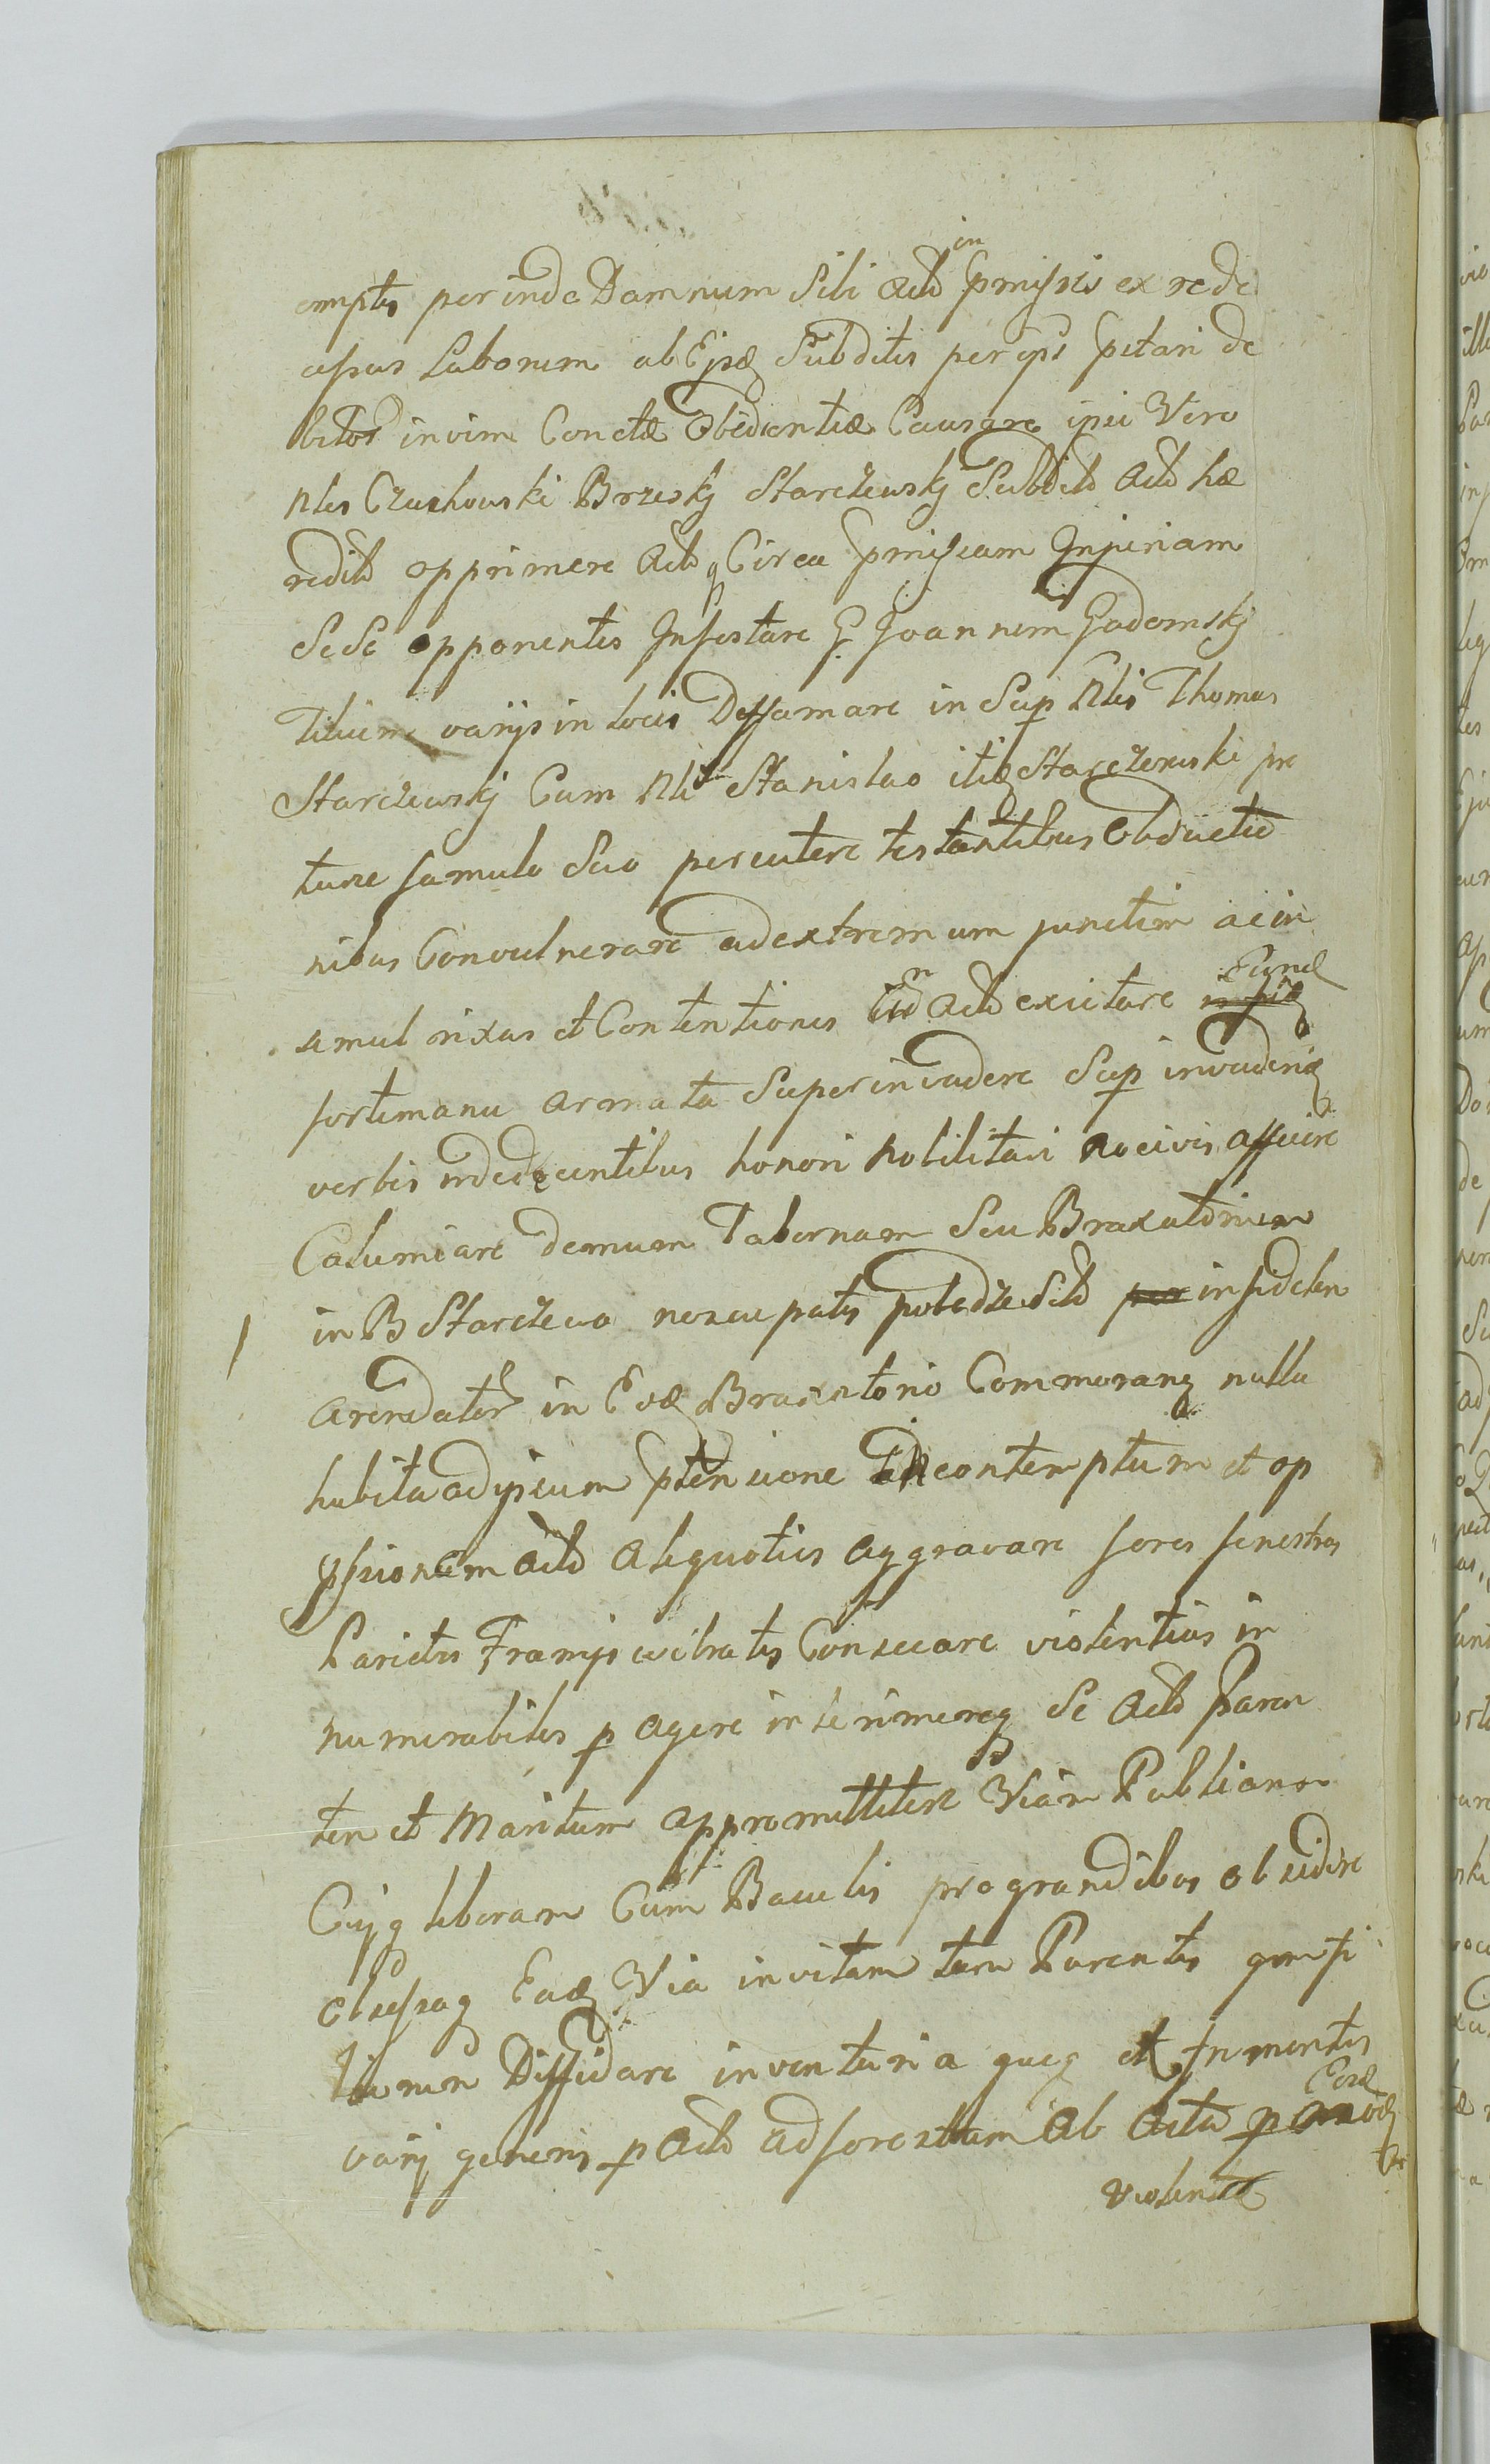 emptis perinde Damnum Sibi Actd in pmissis ex rede
cessus Laborum ab Ejsq Subditis per ips pstari de
bitos in vim Conctæ Obedientiæ Causare ipsi Vero
Nles Czachowski Brzeskj Starczewskj Subdits Actd hæ
redits opprimere Actdq Circa pmissam Injuriam
Sese opponentes Infestare G Joannem Gadomskj
Filium varijs in locis Deffamare in Sup Nlis Thomas
Starczewskj Cum Nli Stanislao itiq Starczewski pro
tunc famulo Suo percutere testantibus Obductio
nibus Convulnerare ad extremum punctim ac in
simul rixas et Contentiones in Actd excitare Eund
forti manu armata Superinvadere Sup invaderiq
verbis indedecentibus honori nobilitari nocivis afficere
Calumiare demum Tabernam Seu Braxatorium
in B Starczewo nuncupatis Actd infidelem
Arendator in Eodq Braxatorio Commoranq nulla
habita ad ipsum ptensione In contemptum et op
pssionem Actd Aliquoties Aggravare fores fenestras
Parietes Frameis vibratis Consecare violentias in
numerabiles p agere interimereq Se Actd Paren
tem et Maritum appromittere Viam Publicam
Cuiq liberam Cum Baculis pregrandibus obsidere
obsessaq Eadq Via invitam tam Parentes qm fi
lium Diffidare inventaria quæq et frumentis
varij generis p Actd ad forestum ab Acta p Eosd
violent